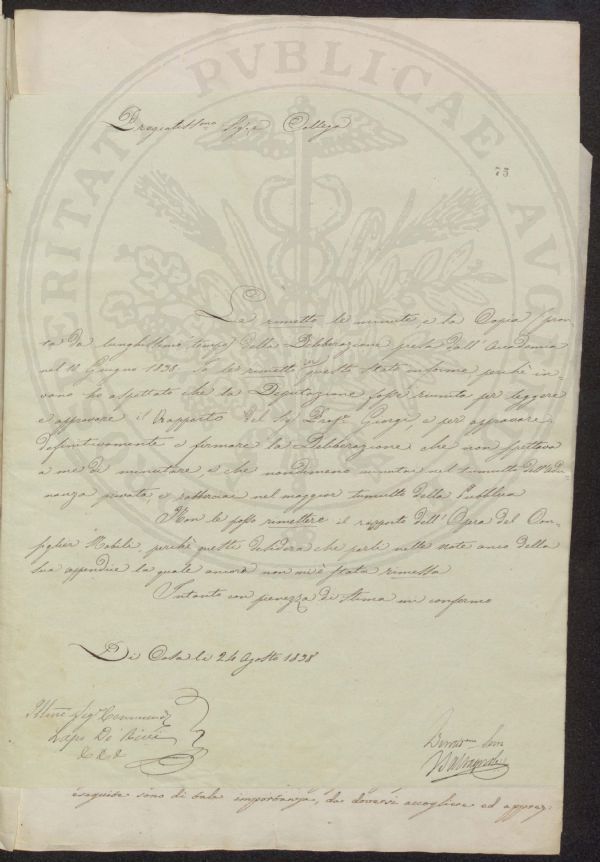 Pregiatissmo Sigre Collega
73
Le rimetto le minute, e la Copia (pron-
ta da lunghissimo tempo) della Deliberazione presa dall'Accademia
nel 10 Giugno 1838. Io le rimetto in questo stato informe perché in-
vano ho aspettato che la Deputazione fosse riunita per leggere
e approvare il Rapporto del Sig Profe Giorgi, e per approvare
definitivamente e firmare la Deliberazione che non spettava
a me di minutare, e che nondimeno minutai nel tumulto dell'Adu-
nanza privata, e nel maggior tumulto della Pubblica
Non le posso rimettere il rapporto dell'Opera del Con-
siglier Nobili perché questi desidera che parli nelle note anco della
sua appendice la quale ancora non mi è stata rimessa
Intanto con pienezza di stima mi confermo
Di Casa li 24 Agosto 1838
Sige
Lapo De' Ricci
&c &c &c
eseguite sono di tale importanza, da doversi accogliere ed apprez-